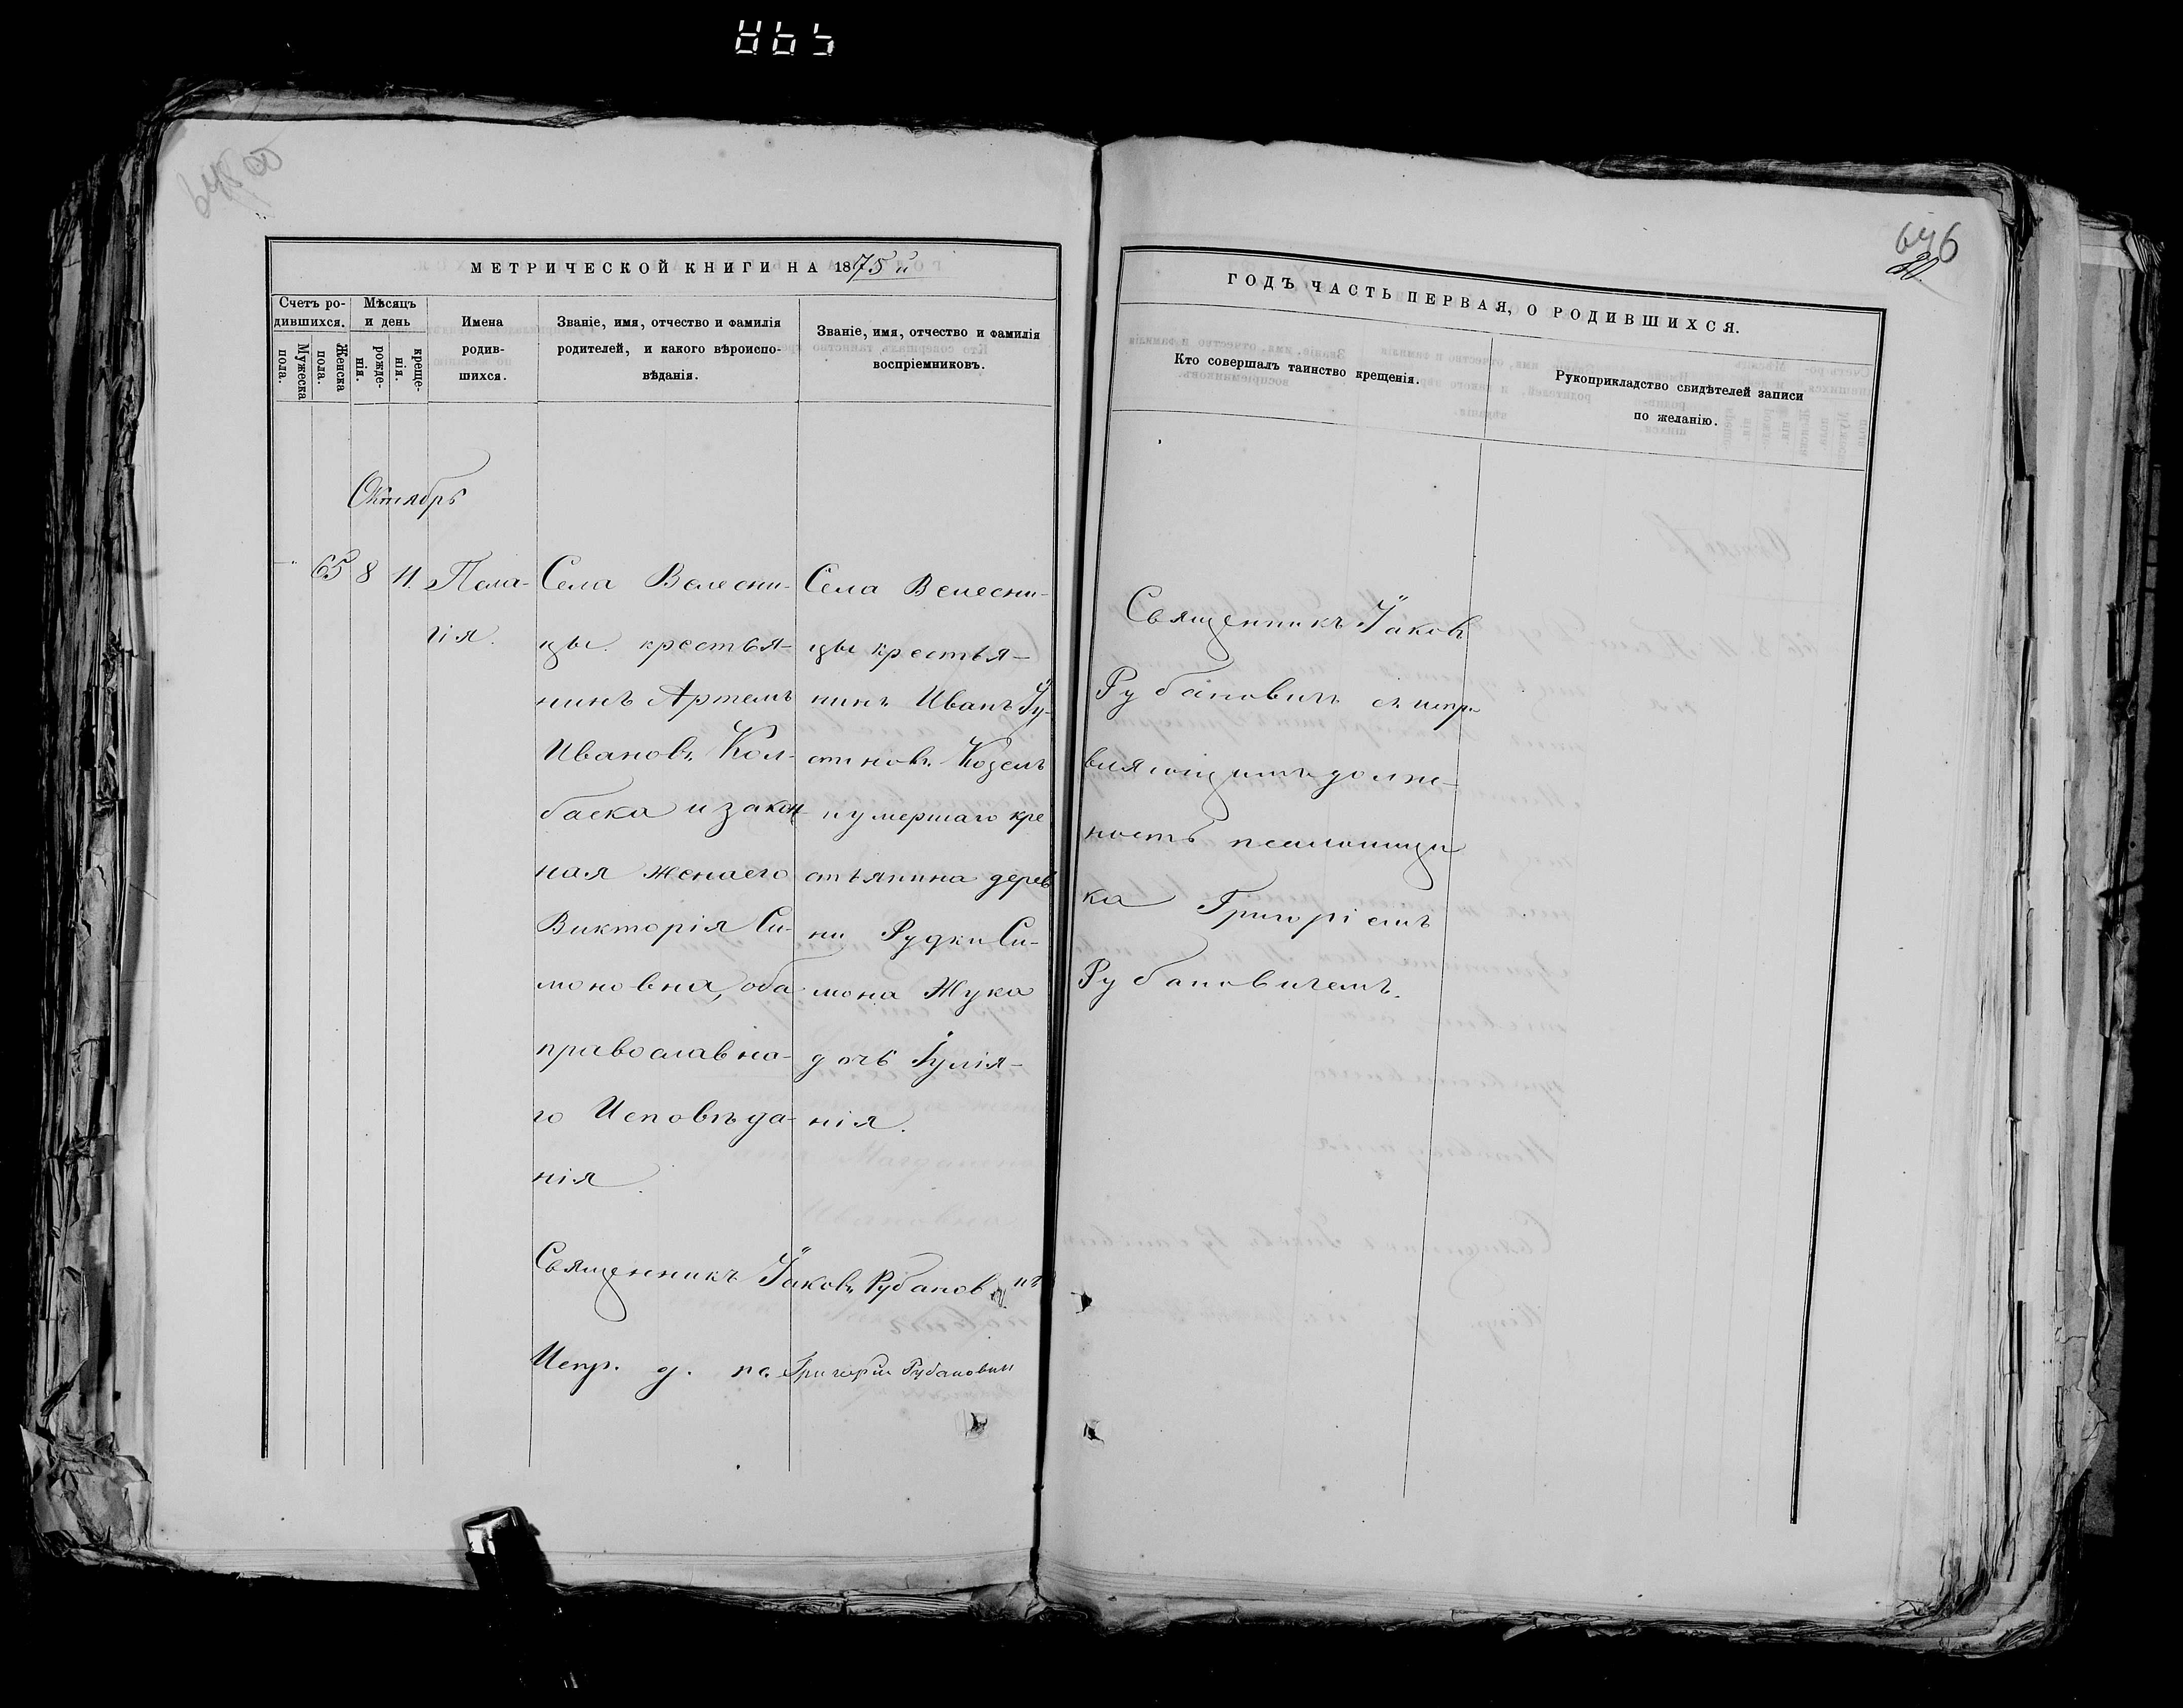 646
МЕТРИЧЕСКОЙ КНИГИ НА 1875 й
Счетъ ро-
дившихся.
Мужеска
пола.
Женска
пола.
Мѣсяцъ
и день
рожде-
нія.
креще-
нія.
Имена
родив-
шихся.
Званіе, имя, отчество и фамилія
родителей, и какого вѣроиспо-
вѣданія.
Званіе, имя, отчество и фамилія
воспріемниковъ.
Октябрь
65 8 11. Пела-
гія.
Села Велесни-
цы крестья-
нинъ Артемъ
Ивановъ Кол-
баска и закон-
ная жена его
Викторія Си-
моновна, оба
православна-
го Исповѣда-
нія.
Села Велесни-
цы крестья-
нинъ Иванъ Іу-
стиновъ Козелъ
и умершаго кре
стьянина дерев
ни Рудки Си-
мона Жука
дочь Іулія-
нія.
Священникъ Іаковъ Рубанович
Испр. д. пс. Григорій Рубанович
ГОДЪ ЧАСТЬ ПЕРВАЯ, О РОДИВШИХСЯ.
Кто совершалъ таинство крещенія.
Рукоприкладство свидѣтелей записи
по желанію.
Священникъ Іаковъ
Рубановичъ съ испра
вляющимъ долж-
ность псаломщи
ка Григоріемъ
Рубановичемъ.